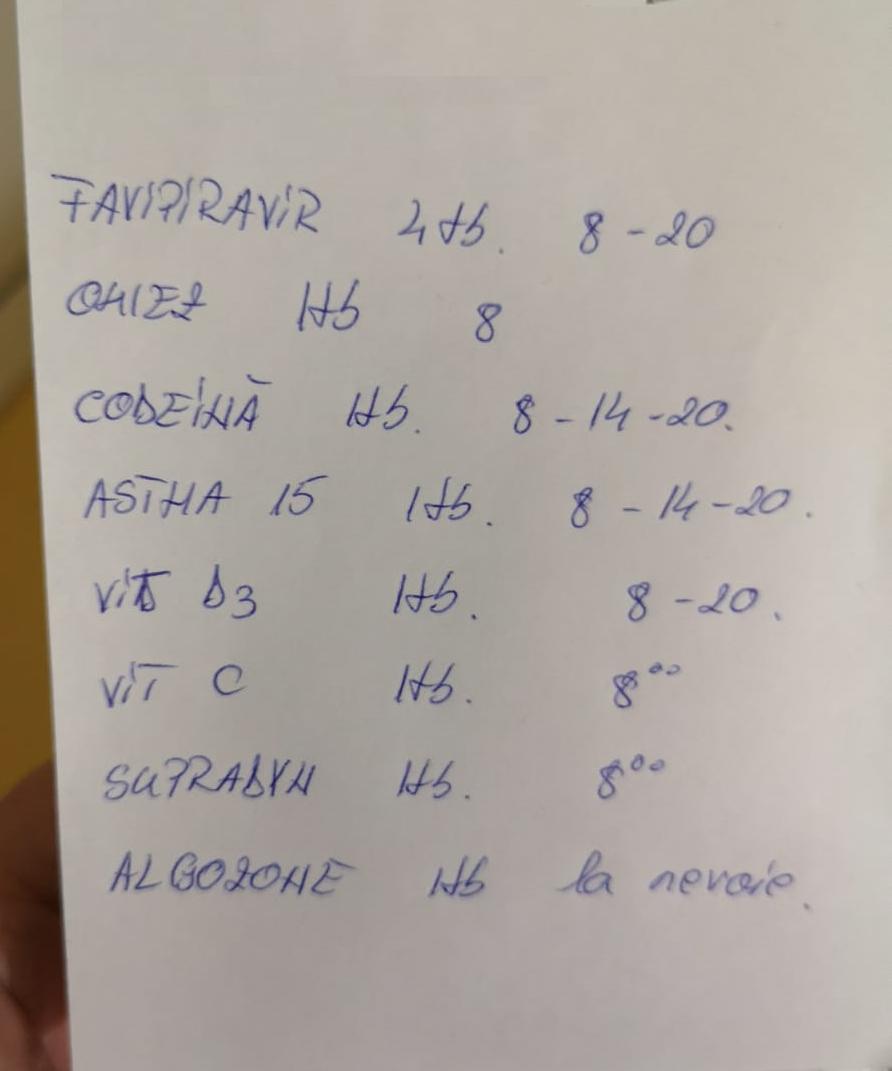 FAVIPIRAVIR 4 tb. 8 - 20
OMEZ 1tb 8
CODEINĂ 1tb. 8 - 14 - 20.
ASTHA 15 1tb. 8 - 14 - 20.
VIT D3 1tb. 8 - 20.
VIT C 1tb. 8⁰⁰
SUPRADYN 1tb. 8⁰⁰
ALGOZONE 1tb la nevoie.